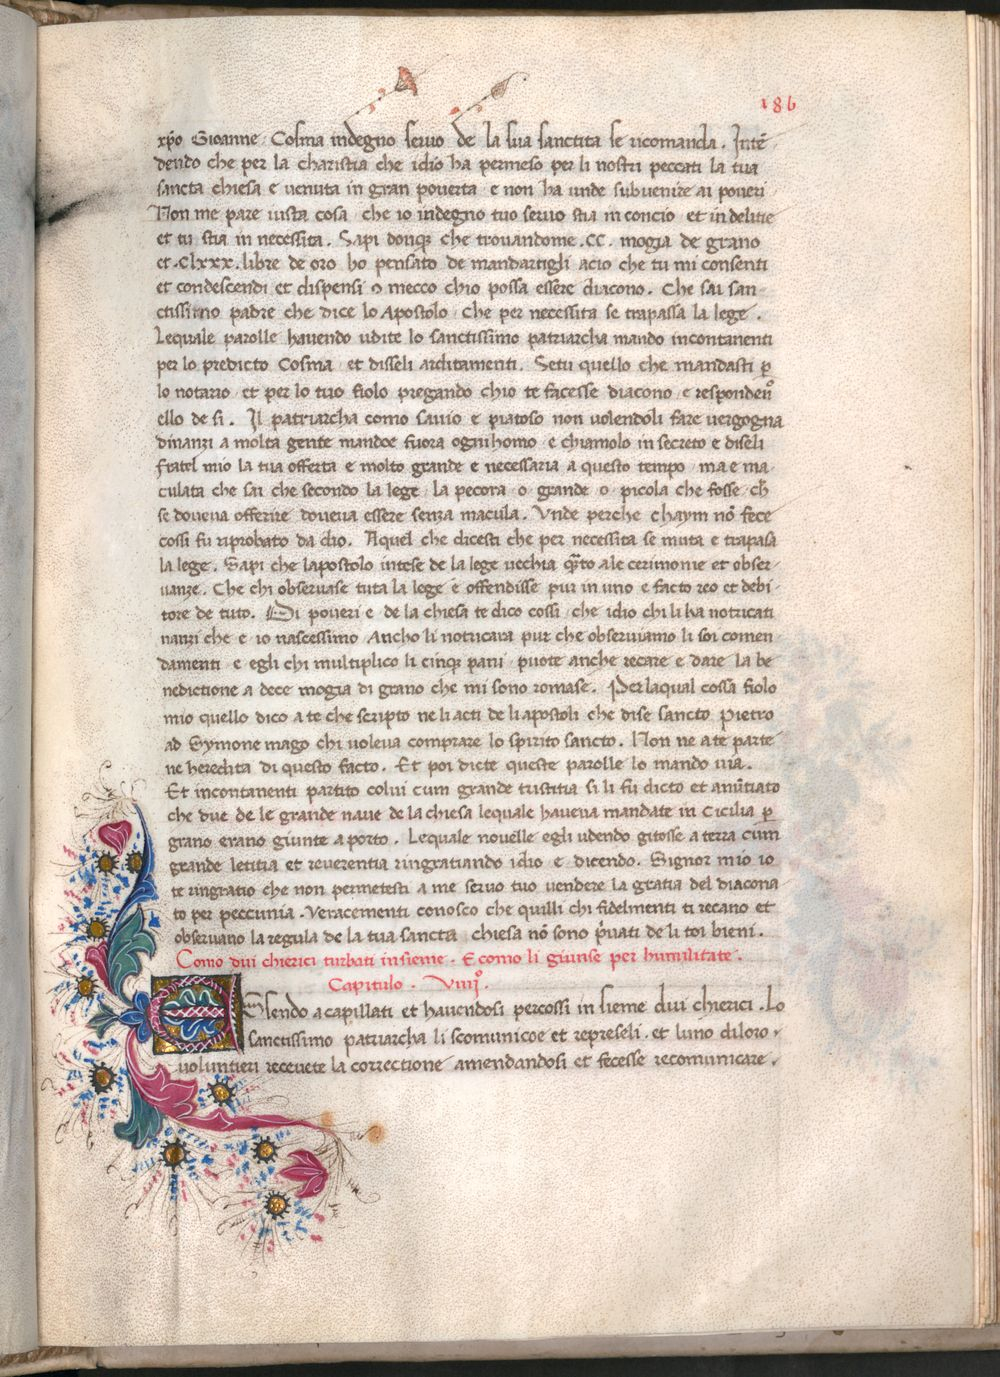 186
xp̄o Gioanne · Cosma indegno seruo de la sua sanctita se ricomanda . Intē
dendo che per la charistia che idio ha permeso per li nostri peccati la tua
sancta chiesa e uenuta in gran pouerta · e non ha unde subuenire ai poueri
Non me pare iusta cosa · che io indegno tuo seruo stia in concio · et in delitie
et tu stia in necessita . Sapi donqȝ che trouandome .CC. mogia de grano
et .Clxxx. libre de oro ho pensato de mandartigli acio che tu mi consenti
et condescendi et dispensi o mecco chio possa essere diacono . Che sai san-
ctissimo padre che dice lo Apostolo · Che per necessita se trapassa la lege .
Lequale parolle hauendo udite lo sanctissimo patriarcha mando incontanenti
per lo predicto Cosma · et disseli arditamenti . Setu quello che mandasti ꝑ
lo notario · et per lo tuo fiolo pregando chio te facesse diacono · e respondeno
ello de si . Il patriarcha como sauio e piatoso non uolendoli fare uergogna
dinanzi a molta gente mandoe fuora ogni homo · e chiamolo in secreto e diseli
fratel mio la tua offerta e molto grande e necessaria a questo tempo · ma e ma-
culata che sai che secondo la lege · la pecora · o grande · o picola che fosse · ch̄
se doueua offerire doueua essere senza macula . Unde perche chaym nō fece
cossi fu riprobato da dio . Aquel che dicesti che per necessita se muta e trapasa
la lege . Sapi che lapostolo intese de la lege uechia q̄to ale cerimonie et obser-
uanze . Che chi obseruase tuta la lege e offendisse pur in uno e facto reo et debi-
tore de tuto . Di poueri e de la chiesa te dico cossi · che idio chi li ha notricati
nanzi che e io nascessimo · Ancho li notricara pur che obseruiamo li soi comen-
damenti · e egli chi multiplico li cinqȝ pani · puote anche recare e dare la be
nedictione a dece mogia di grano che mi sono romase . Per laqual cossa fiolo
mio quello dico a te che scripto ne li acti de li apostoli che dise sancto Pietro
ad Symone mago chi uoleua comprare lo spirito sancto . Non ne a te parte
ne heredita di questo facto . Et poi dicte queste parolle lo mando uia .
Et incontanenti partito colui cum grande tristitia si li fu dicto et anūtiato
che due de le grande naue de la chiesa lequale haueua mandate in Cicilia ꝑ
grano erano giunte a porto . Lequale nouelle egli udendo gitosse a terra cum
grande letitia et reuerentia ringratiando idio e dicendo . Signor mio io
te ringratio che non permetesti a me seruo tuo uendere la gratia del diacona
to per peccunia . Veracementi conosco che quilli chi fidelmenti ti recano et
obseruano la regula de la tua sancta chiesa nō sono p̄uati de li toi bieni .
Como dui chierici turbati insieme . E como li giunse per humilitate .
Capitulo . Viiijº.
Essendo acapillati et hauendosi percossi in sieme dui chierici . Lo
sanctissimo patriarcha li scomunicoe et represeli . et luno diloro
uoluntieri receuete la correctione amendandosi et fecesse recomunicare .